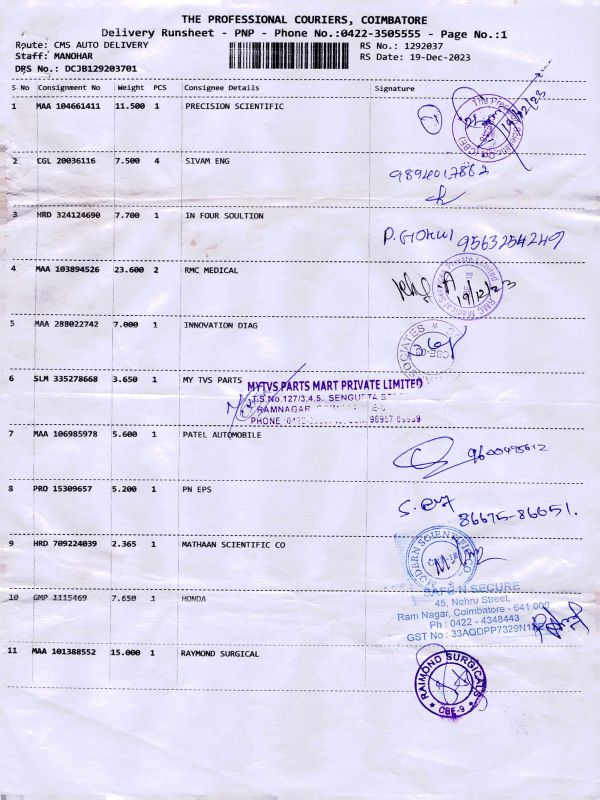 THE PROFESSIONAL COURIERS, COIMBATORE
Delivery Runsheet - PNP - Phone No.:0422-3505555 - Page No.:1
Route: CMS AUTO DELIVERY
RS No.: 1292037
Staff: MANOHAR
RS Date: 19-Dec-2023
DRS No.: DCJB129203701
S No Consignment No Weight PCS Consignee Details Signature
1 MAA 104661411 11.500 1 PRECISION SCIENTIFIC
19/12/23
2 CGL 20036116 7.500 4 SIVAM ENG
9894017862
3 HRD 324124690 7.700 1 IN FOUR SOULTION
P. GOKUL 9563254249
4 MAA 103894526 23.600 2 RMC MEDICAL
RMC Medical Services Private Limited
19/12/23
5 MAA 288022742 7.000 1 INNOVATION DIAG
6 SLM 335278668 3.650 1 MY TVS PARTS
MYTVS PARTS MART PRIVATE LIMITED
T.S.No.127/3,4,5, SENGUPTA
RAMNAGAR,
PHONE
7 MAA 106985978 5.600 1 PATEL AUTOMOBILE
8 PRO 15309657 5.200 1 PN EPS
86675-86651.
9 HRD 709224039 2.365 1 MATHAAN SCIENTIFIC CO
MODERN SCIENTIFIC CO
10 GMP 1115469 7.650 1 HONDA
SAFE N SECURE
45, Nehru Street,
Ram Nagar, Coimbatore - 641 009
Ph : 0422 - 4348443
GST No : 33AQDPP7329N1
11 MAA 101388552 15.000 1 RAYMOND SURGICAL
RAIMOND SURGICALS
CBE-9